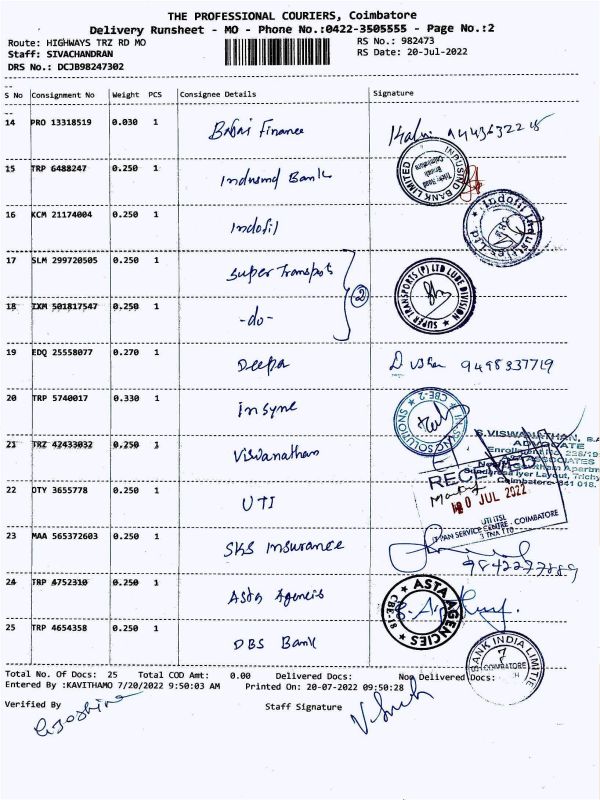 THE PROFESSIONAL COURIERS, Coimbatore
Delivery Runsheet - MO - Phone No.:0422-3505555 - Page No.:2
Route: HIGHWAYS TRZ RD MO
RS No.: 982473
Staff: SIVACHANDRAN
RS Date: 20-Jul-2022
DRS No.: DCJB98247302
S No Consignment No Weight PCS Consignee Details Signature
14 PRO 13318519 0.030 1 Bajaj Finance
15 TRP 6488247 0.250 1 Indusind Bank
INDUSIND BANK LIMITED
Trichy Road
Branch
Coimbatore
16 KCM 21174004 0.250 1 Indofil
Indofil Industries Ltd
17 SLM 299720505 0.250 1 Super Transpots
SUPER TRANSPORTS (P) LTD LUBE DIVISION
2
18 IXM 501817547 0.250 1 -do-
19 EDQ 25558077 0.270 1 Deepa
20 TRP 5740017 0.330 1 Insync
CBE-2
21 TRZ 42433032 0.250 1 Viswanathan
S.VISWANATHAN,
ADVOCATE
22 OTY 3655778 0.250 1 UTI
RECEIVED
JUL 2022
UTIITSL
IT PAN SERVICE CENTRE - COIMBATORE
23 MAA 565372603 0.250 1 SKS Insurance
24 TRP 4752310 0.250 1 Asta Agencies
ASTA AGENCIES
CBE-18
25 TRP 4654358 0.250 1 DBS Bank
BANK INDIA LIMITE
7
COIMBATORE
Total No. Of Docs: 25 Total COD Amt: 0.00 Delivered Docs: Non Delivered Docs:
Entered By :KAVITHAMO 7/20/2022 9:50:03 AM Printed On: 20-07-2022 09:50:28
Verified By
Staff Signature